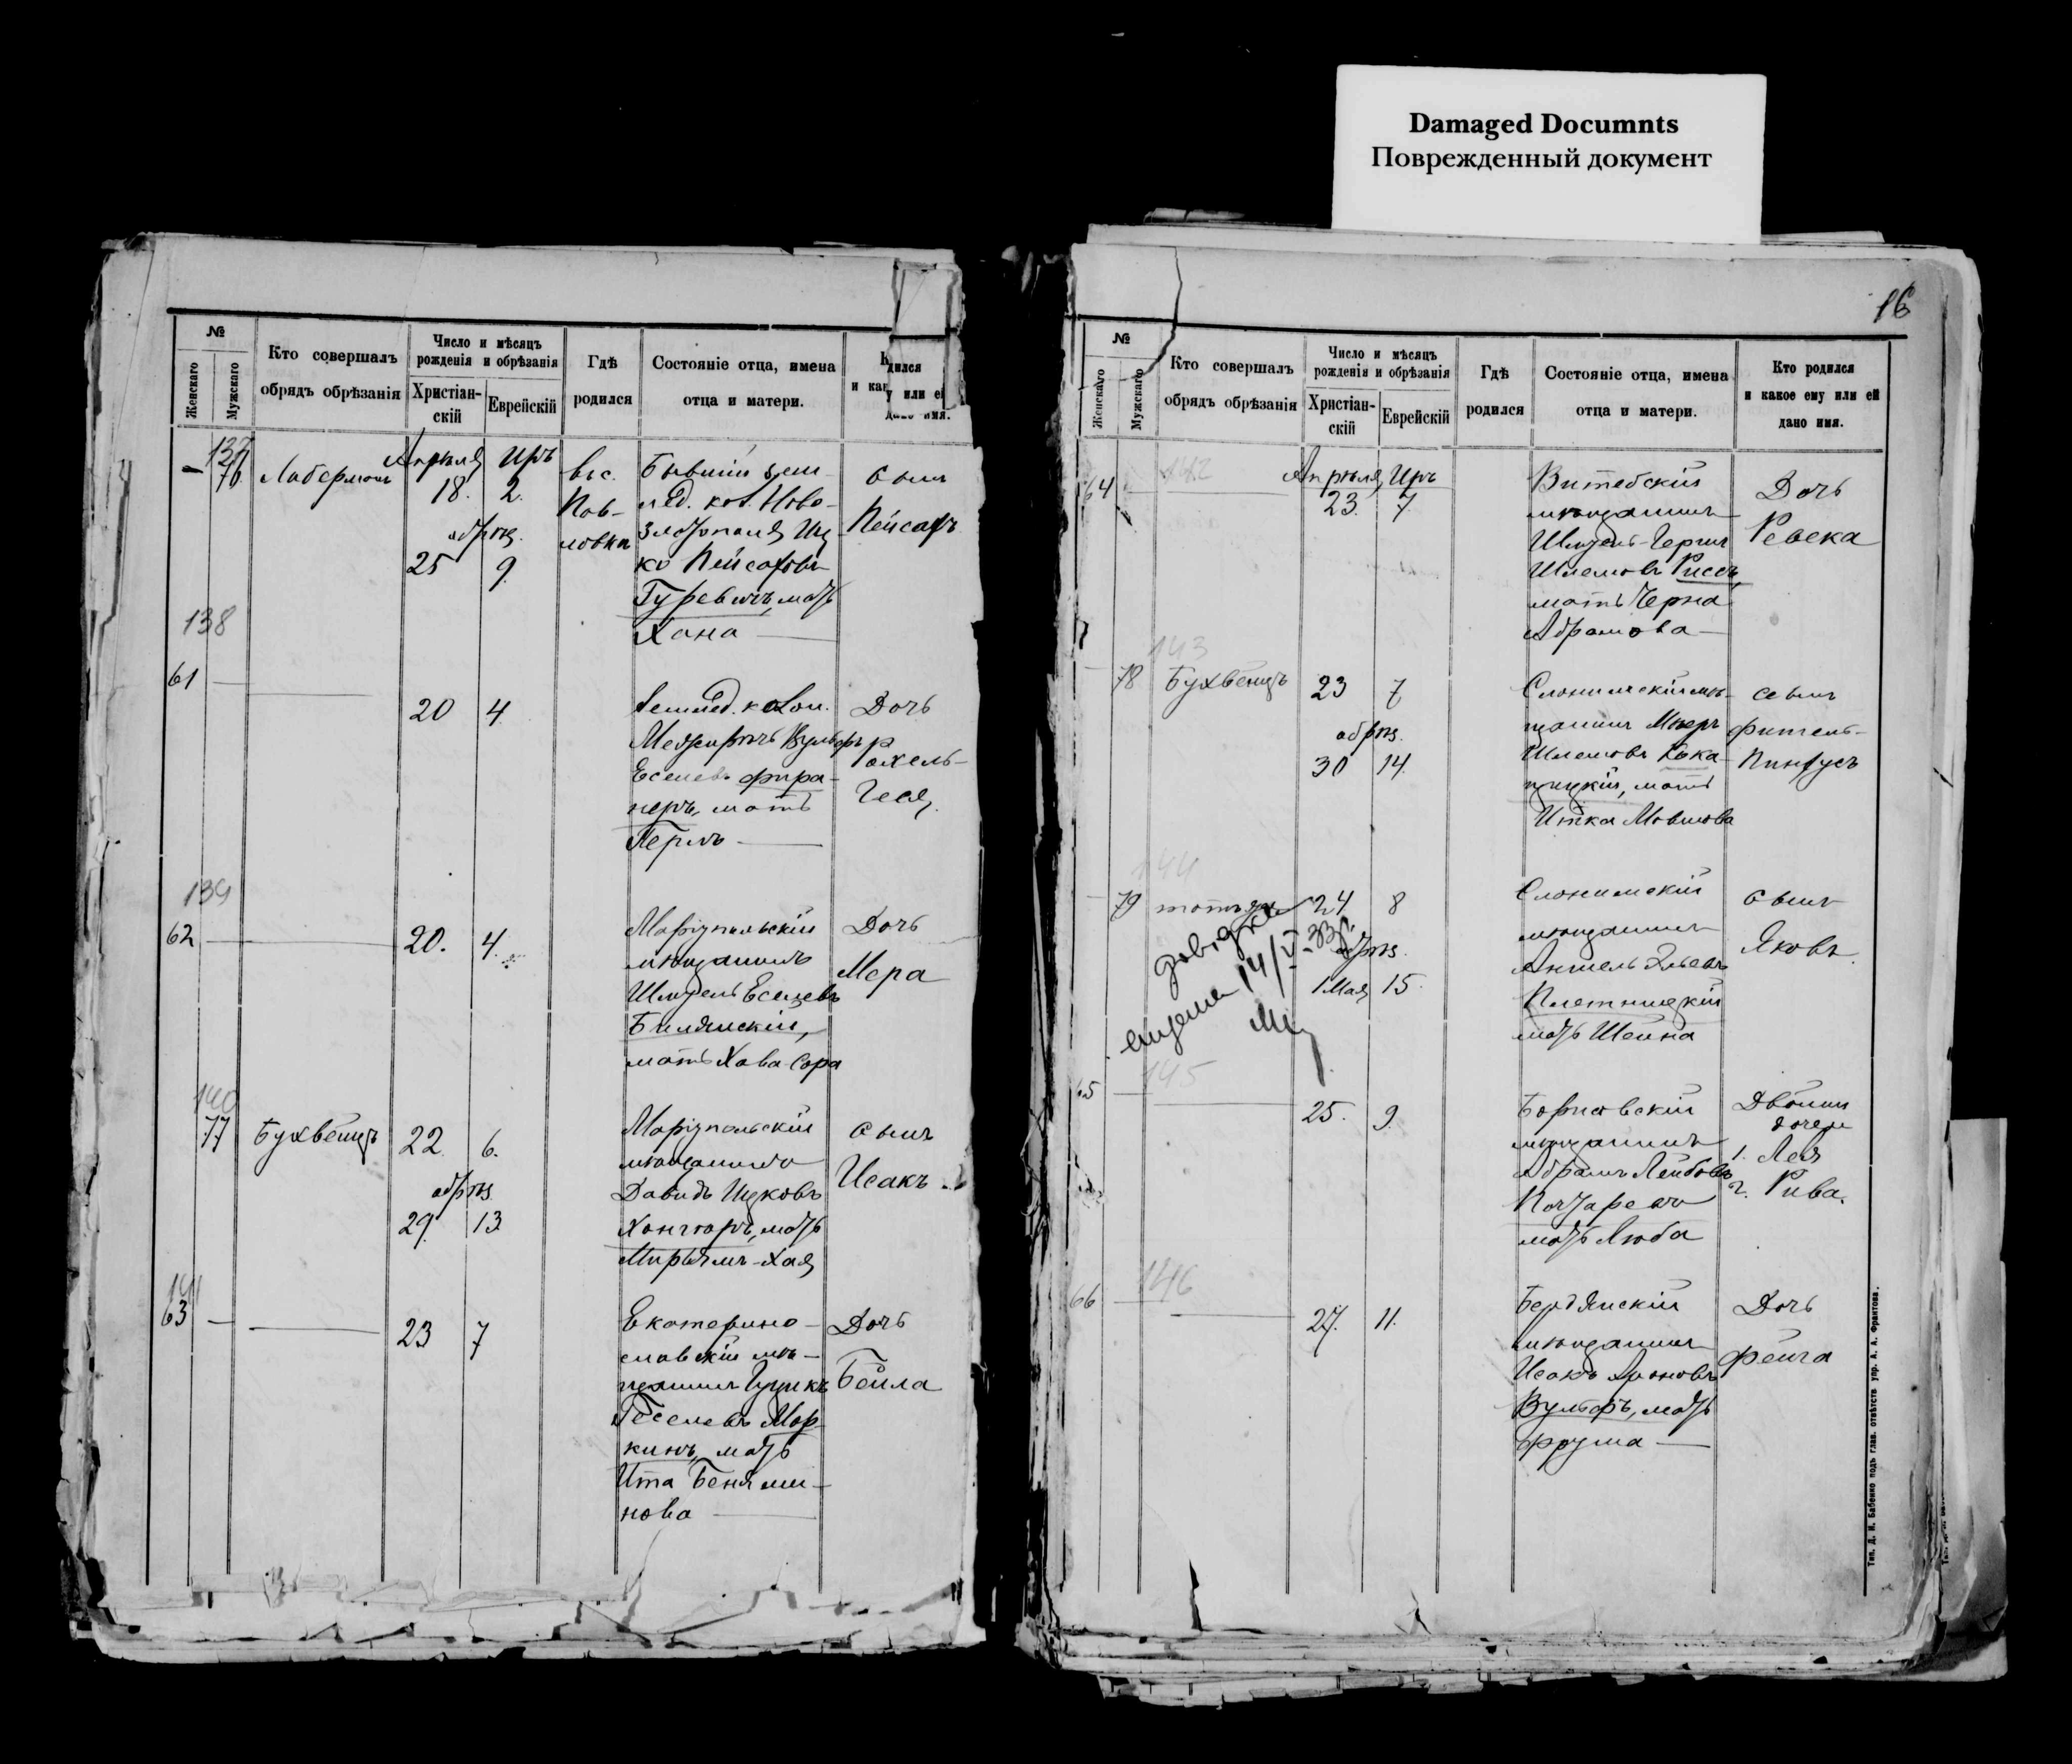 Damaged Documnts
Поврежденный документ
№
Женскаго
Мужскаго
Кто совершалъ
обрядъ обрѣзанія
Число и мѣсяцъ
рожденія и обрѣзанія
Христіан-
скій
Еврейскій
Гдѣ
родился
Состояніе отца, имена
отца и матери.
дился
и как у или ей
дано имя.
137
76
Апрѣля Иръ
18. 2.
обрѣз.
25 9.
вьс.
Пав-
ловка
Бывшій зем-
лед. кол. Ново-
златополя Иц-
ко Пейсаховъ
Гуревичъ, мать
Хана
сынъ
Пейсахъ
138
61
20 4
Землед. колон.
Межиричъ Вульфъ
Еселев
мать
Перлъ
Дочь
Рахель-
Геся
139
62
20. 4.
Маріупольскій
мѣщанинъ
Шмуель
мать Хава-Сора
Дочь
Мера
140
77
Бухвейцъ
22 6.
обрѣз.
29. 13
Маріупольскій
мѣщанинъ
Давидъ Ицковъ
мать
Мирьямъ-Хая
сынъ
Исакъ
141
63
23 7
Екатерино-
славскій мѣ-
щанинъ
Геселевъ Мар-
кинъ, мать
Ита Беньями-
нова
Дочь
Бейла
16
№
Женскаго
Мужскаго
Кто совершалъ
обрядъ обрѣзанія
Число и мѣсяцъ
рожденія и обрѣзанія
Христіан-
скій
Еврейскій
Гдѣ
родился
Состояніе отца, имена
отца и матери.
Кто родился
и какое ему или ей
дано имя.
142
64
Апрѣля Иръ
23. 7.
Витебскій
мѣщанинъ
Шлемовъ Риссъ,
мать Черна
Абрамова
Дочь
Ревека
143
78
Бухвейцъ
23 7
обрѣз.
30 14.
Слонимскій мѣ-
щанинъ Мееръ
Шлемовъ
мать
Итка Мовшова
сынъ
Фитель-
Пинхусъ
144
79
тотъ же
24 8
обрѣз.
1 Мая 15.
Слонимскій
мѣщанинъ
Аншель Эльевъ
Плетницкій
мать Шейна
сынъ
Яковъ.
145
65
25. 9.
Борисовскій
мѣщанинъ
Абрамъ Лейбовъ
мать Люба
Двойни
дочери
1. Лея
2. Рива.
146
66
27. 11.
Бердянскій
мѣщанинъ
Исакъ Ароновъ
Вульфъ, мать
Фрума
Дочь
Фейга
Тип. Д. И. Бабенко подъ глав. отвѣтств. упр. А. А. Франтова.